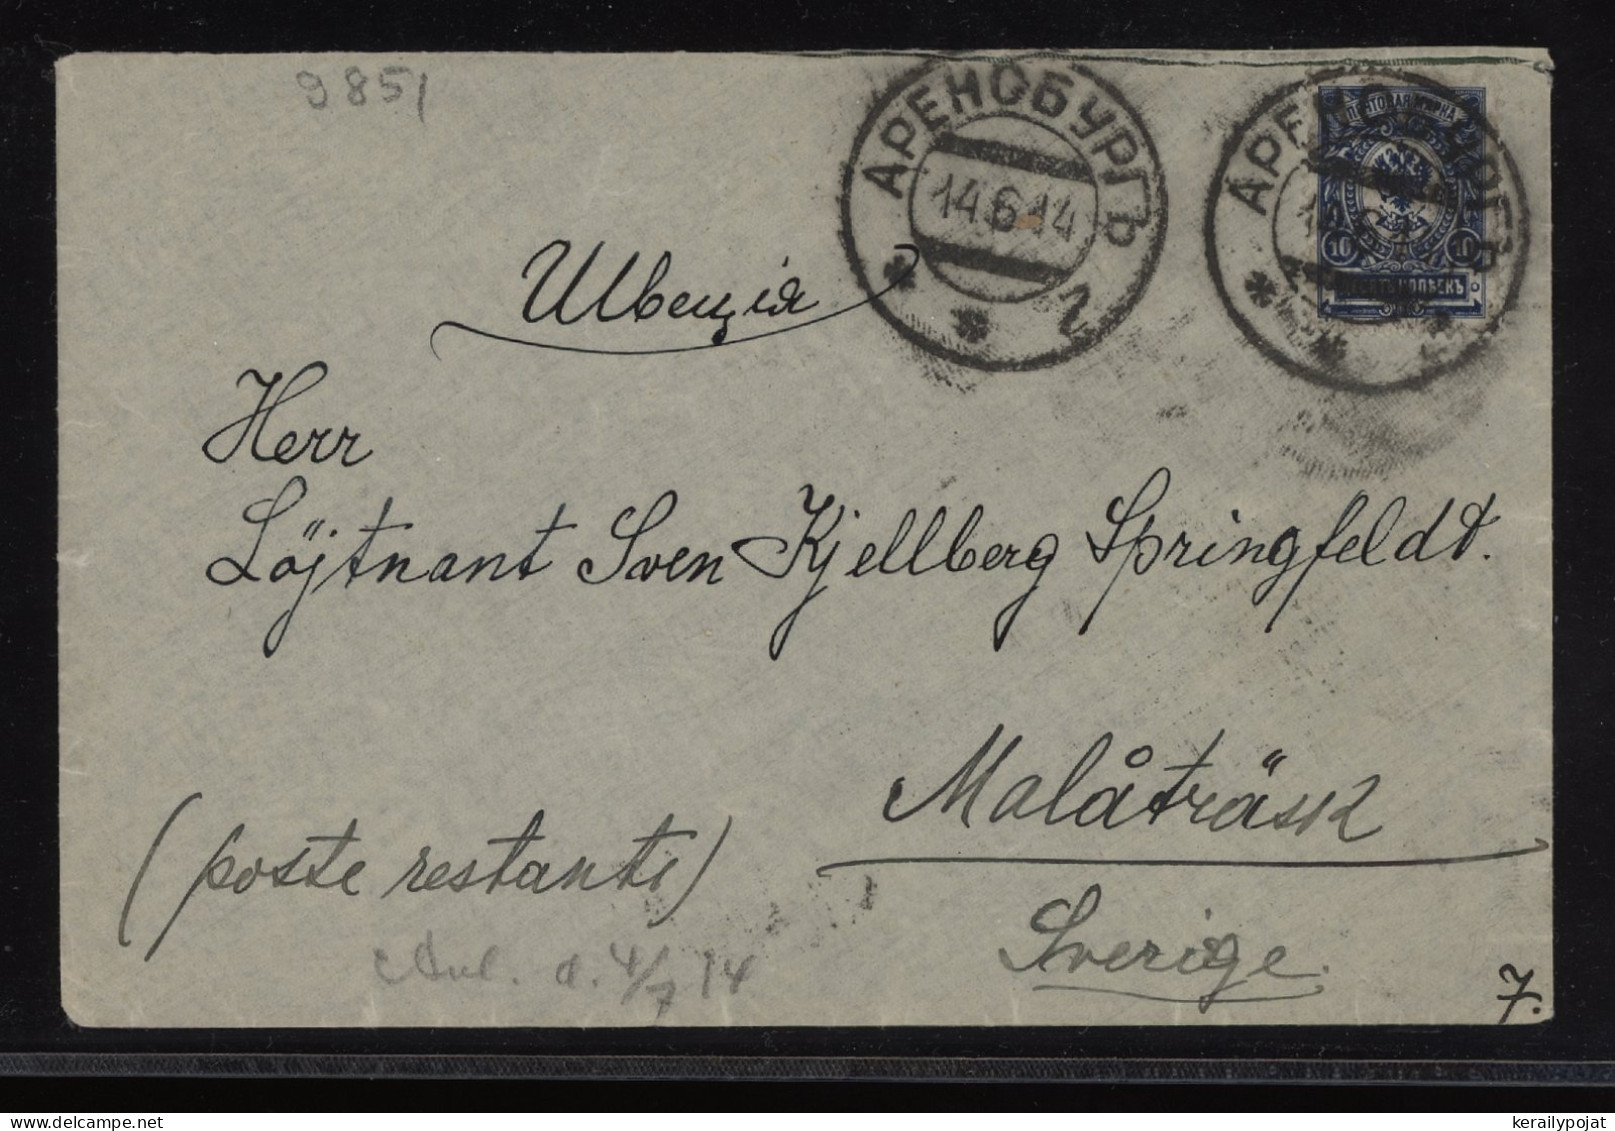 9851
АРЕНСБУРГЪ
14.6.14
2
ПОЧТОВАЯ МАРКА
10 10
КОПѢЕКЪ
Швецiя
Herr
Löjtnant Sven Kjellberg Springfeldt.
Malåträsk
(poste restante)
Sverige.
Ank. d. 4/7 14
7.
kerailypojat